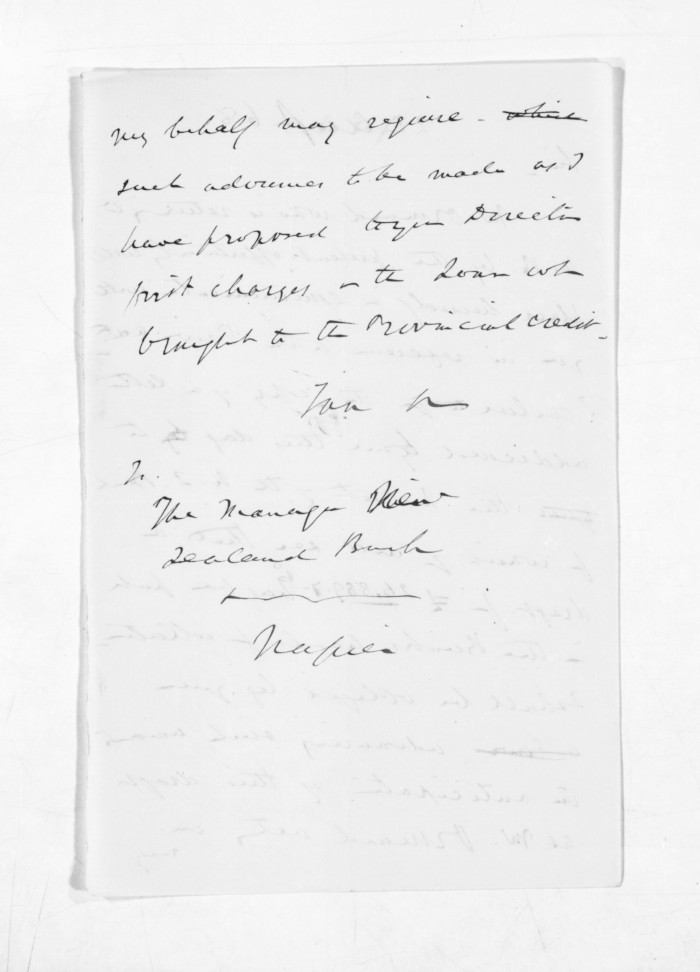 my behalf may require - which
such advances to be made as I
have proposed to your Directors
first charges on the Loan when
brought to the Provincial credit -
To.
The Manager New
Zealand Bank
Napier